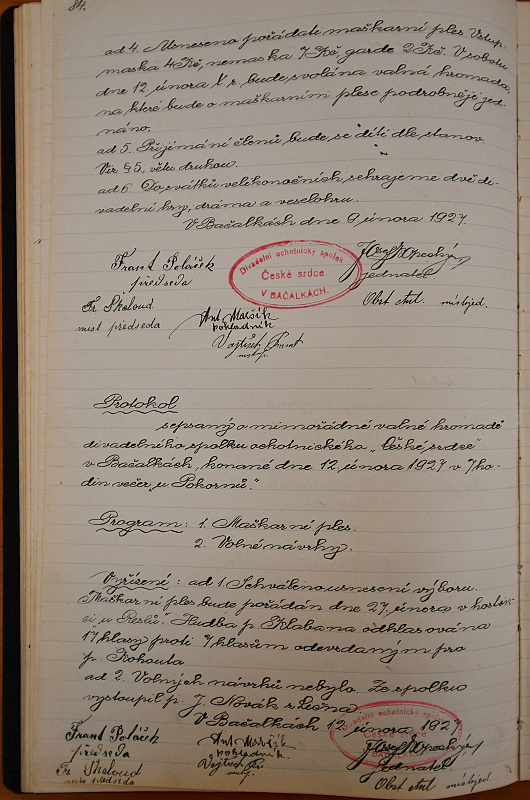 84.
ad 4. Usneseno pořádati maškarní ples. Vstup
maska 4 Kč, nemaska 7 Kč garde 2 Kč. V sobotu
dne 12. února t. r. bude svolána valná hromada,
na které bude o maškarním plese podrobněji jed-
náno.
ad 5. Přijímání členů bude se díti dle stanov
Viz § 5. větu druhou.
ad 6. Do svátků velikonočních sehrajeme dvě di-
vadelní hry, drama a veselohru.
V Bačalkách dne 9. února 1927.
Frant Poláček
předseda
Divadelní ochotnický spolek
České srdce
V BAČALKÁCH.
jednatel
Fr Škaloud
míst předseda
Ant. Maršík
pokladník
Obst Ant. místojed.
Vojtíšek
Protokol
sepsaný o mimořádné valné hromadě
divadelního spolku ochotnického „České srdce"
v Bačalkách, konané dne 12. února 1927 v 7 ho-
din večer „u Pokornů."
Program: 1. Maškarní ples.
2. Volné návrhy.
Vyřízení: ad 1. Schváleno usnesení výboru.
Maškarní ples bude pořádán dne 27. února v hostin-
ci u Reslů. Hudba p. Klabana odhlasována
17 hlasy proti 7 hlasům odevzdaným pro
p. Kohouta
ad 2. Volných návrhů nebylo. Ze spolku
vystoupil p. J. Novák z Lična.
V Bačalkách 12. února 1927
Frant Poláček
předseda
Ant. Maršík
pokladník
Divadelní ochotnický spolek
České srdce
V BAČALKÁCH.
jednatel
Fr Škaloud
míst předseda
Obst Ant místojed.